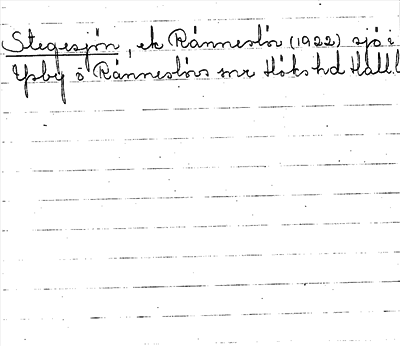 Stegesjön, ek Ränneslöv (1922) sjö i
Ysby o Ränneslövs snr Höks hd Hall. l